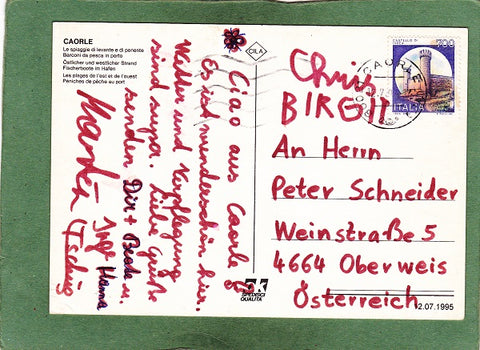 CAORLE
Le spiaggie di levante e di ponente
Barconi da pesca in porto
Östlicher und westlicher Strand
Fischerboote im Hafen
Les plages de l'est et de l'ouest
Péniches de pêche au port
CILA
Ciao aus Caorle
Es ist wunderschön hier.
Wetter und Verpflegung
sind super. Liebe Grüße
senden Dir + Beate u.
Hanna
Tschüs
Chris
BIRGIT
An Herrn
Peter Schneider
Weinstraße 5
4664 Oberweis
Österreich
700
ITALIA
CAORLE
SPEDISCI QUALITÀ
12.07.1995